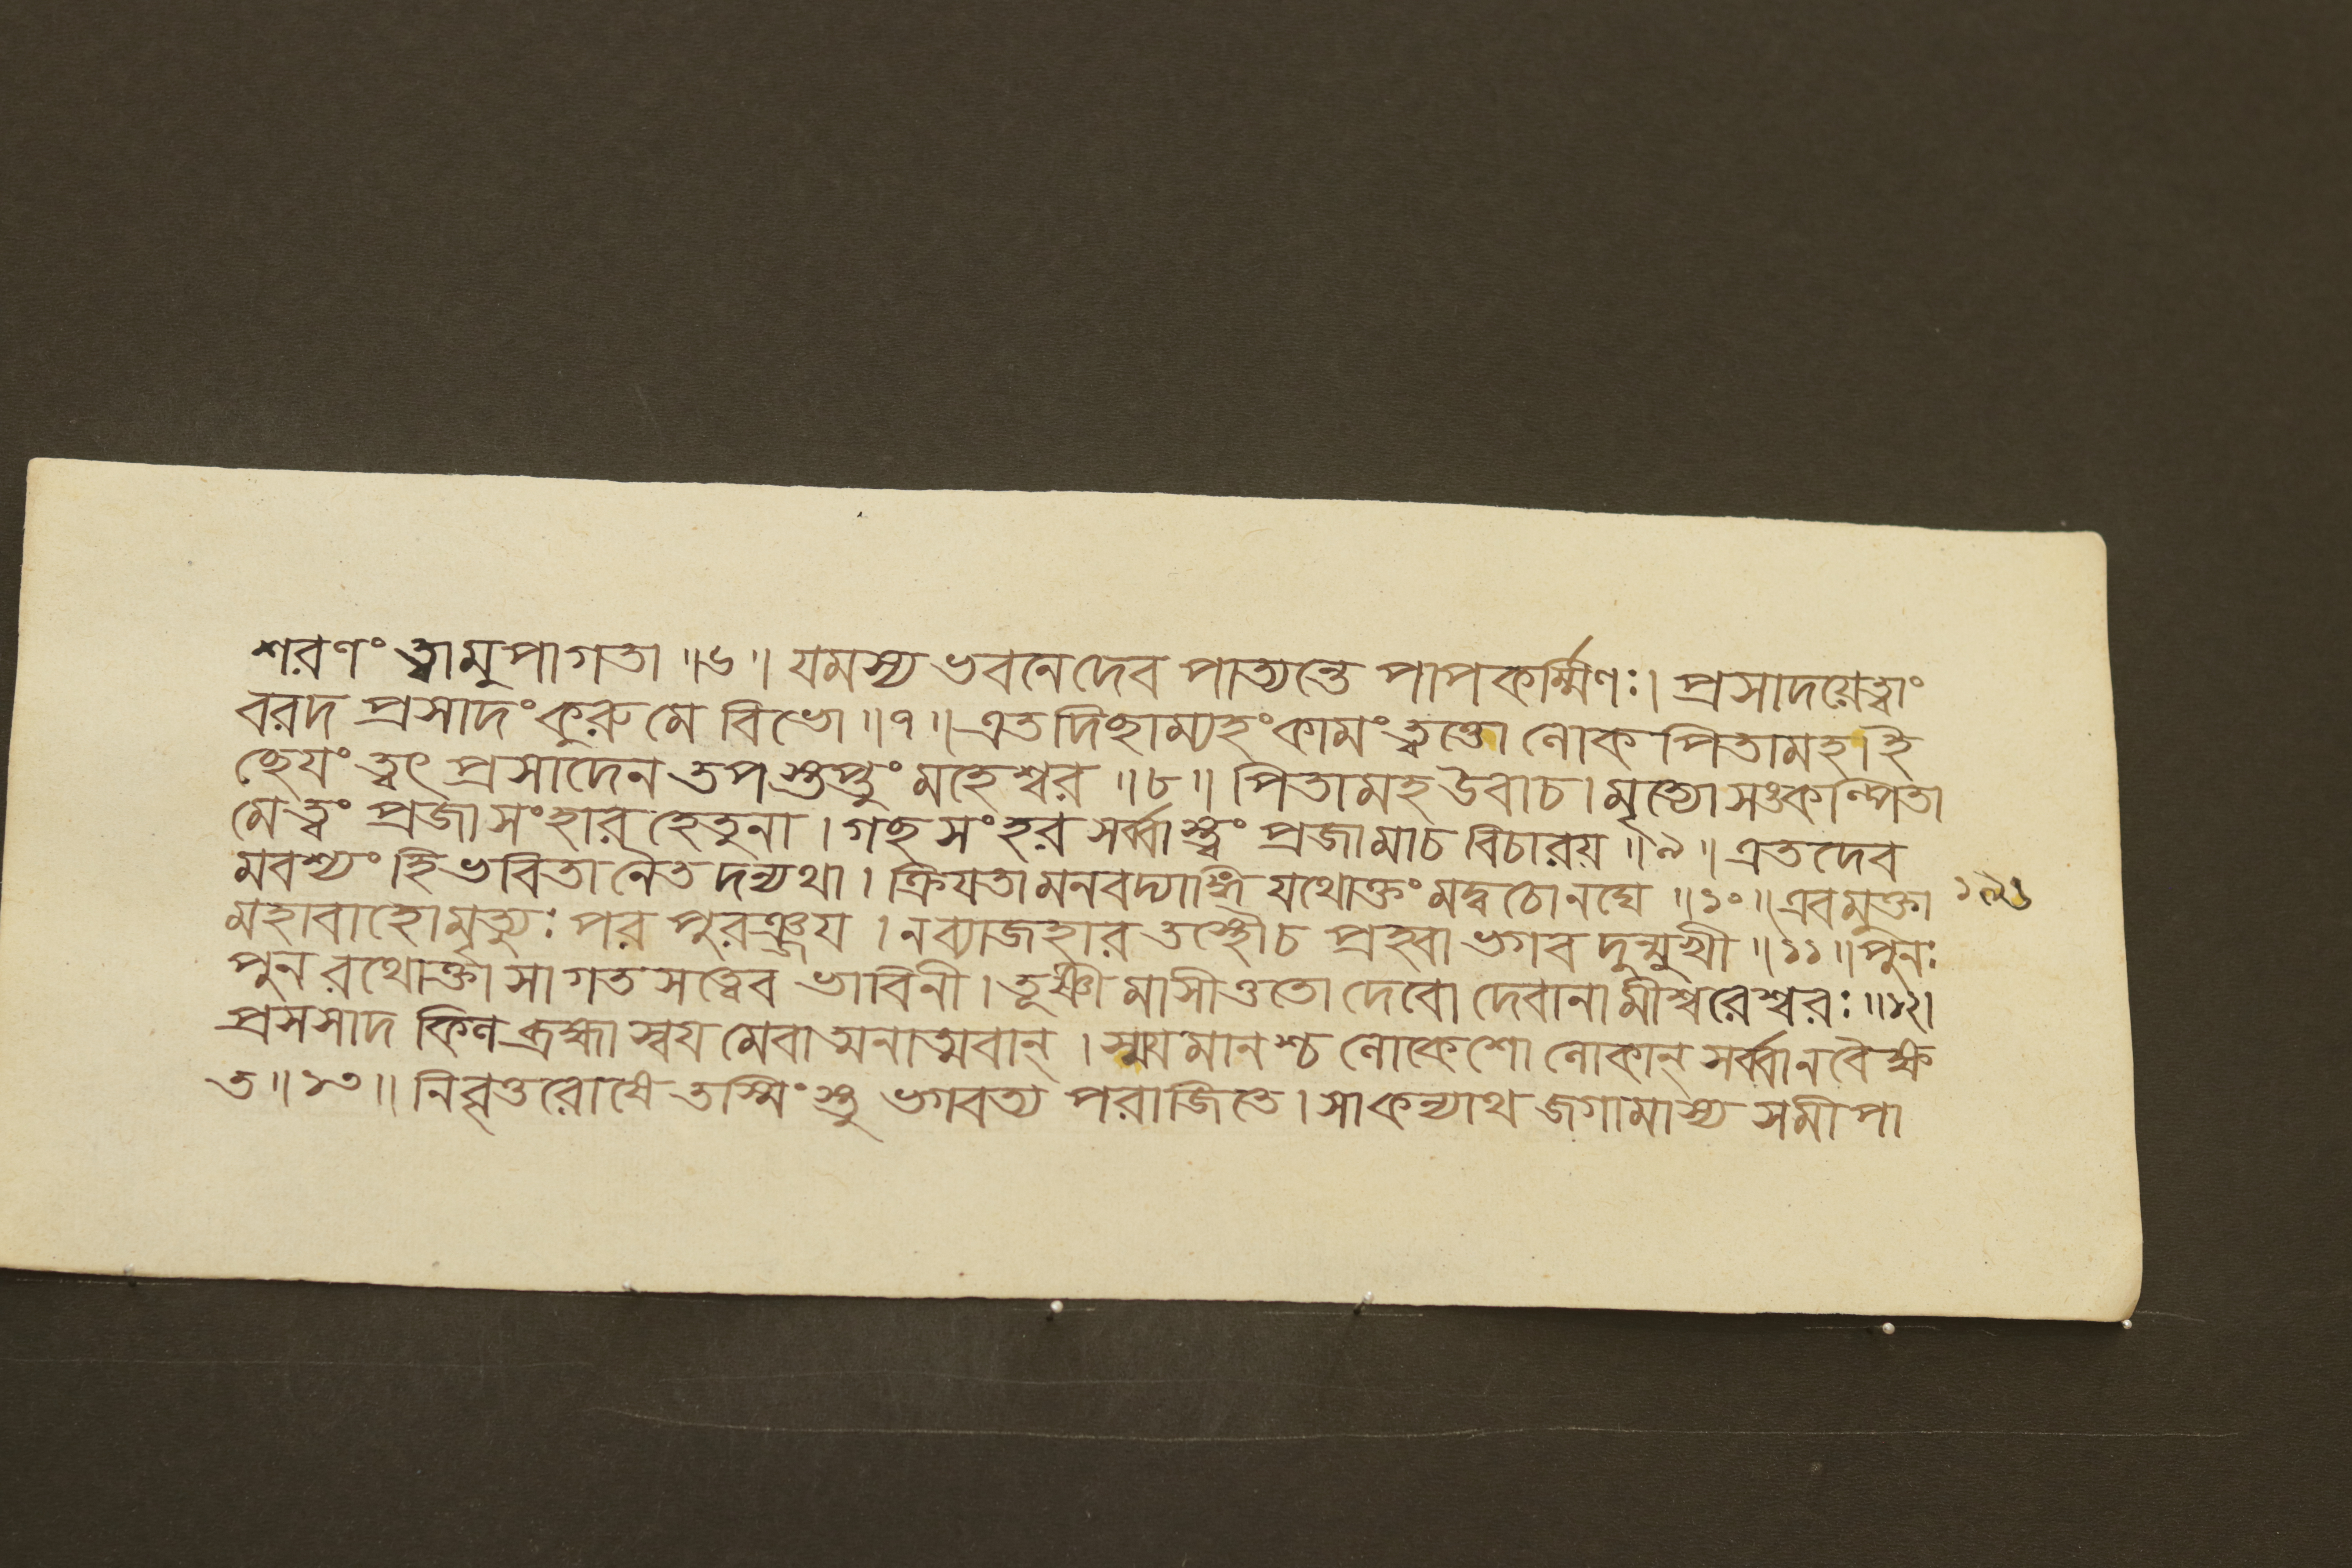 শরণং ত্বামুপাগতা ॥৬॥ যমস্য ভবনে দেব পাত্যন্তে পাপকর্ম্মিণঃ। প্রসাদয়েত্বাং
বরদ প্রসাদং কুরু মে বিভো ॥৭॥ এতদিছাম্যহং কামং ত্বত্তো লোকপিতামহ। ই
ছেয়ং ত্বৎ প্রসাদেন তপস্তপ্তুং মহেশ্বর ॥৮॥ পিতামহ উবাচ। মৃত্যো সঙ্কল্পিতা
মে ত্বং প্রজাসংহার হেতুনা। গছ সংহর সর্ব্বাস্ত্বং প্রজা মাচ বিচারয় ॥৯॥ এতদেব
মবশ্যং হি ভবিতা নৈতদন্যথা। ক্রিয়তামনবদ্যাঙ্গি যথোক্তং মদ্বচোনঘে ॥১০॥ এবমুক্তা ১৯১
মহাবাহো মৃত্যুঃ পরপুরঞ্জয়। ন ব্যাজহার তস্থৌচ প্রহ্বা ভগবদুন্মুখী ॥১১॥ পুনঃ
পুনরথোক্তা সা গতসত্ত্বেব ভাবিনী। তূষ্ণীমাসীত্ততো দেবো দেবানামীশ্বরেশ্বরঃ ॥১২।
প্রসসাদ কিল ব্রহ্মা স্বয়মেবাত্মনাত্মবান্। স্ময়মানশ্চ লোকেশো লোকান্ সর্ব্বানবৈক্ষ
ত ॥১৩॥ নিবৃত্তরোষে তস্মিংস্তু ভগবত্যপরাজিতে। সা কন্যাথ জগামাস্য সমীপা